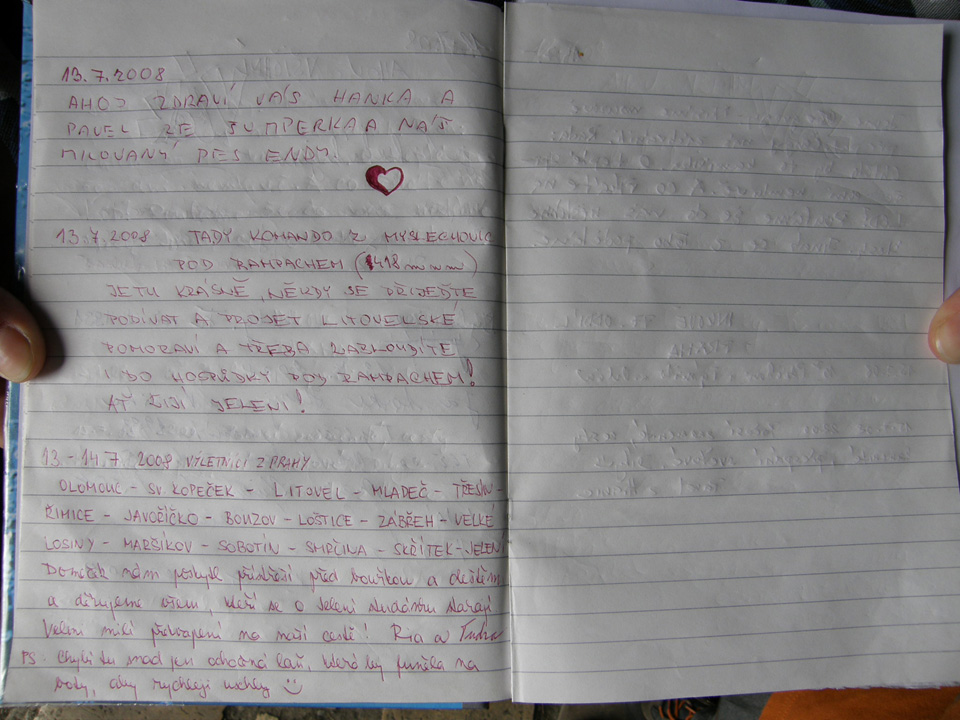 13.7.2008
AHOJ ZDRAVÍ VÁS HANKA A
PAVEL ZE ŠUMPERKA A NÁŠ
MILOVANÝ PES ENDY.
13.7.2008 TADY KOMANDO Z MYSLECHOVIC
POD RAMPACHEM (418 m n m)
JETU KRÁSNĚ, NĚKDY SE PŘIJEĎTE
PODÍVAT A PROJET LITOVELSKÉ
POMORAVÍ A TŘEBA ZABLOUDÍTE
I DO HOSPŮDKY POD RAMPACHEM!
AŤ ŽIJÍ JELENI!
13.-14.7. 2008 VÝLETNÍCI Z PRAHY
OLOMOUC - SV. KOPEČEK - LITOVEL - MLADEČ - TŘESÍN -
ŘIMICE - JAVOŘÍČKO - BOUZOV - LOŠTICE - ZÁBŘEH - VELKÉ
LOSINY - MARŠÍKOV - SOBOTÍN - SMRČINA - SKŘÍTEK - JELENÍ
Domeček nám poskytl přístřeší před bouřkou a deštěm
a děkujeme všem, kteří se o Jelení studánku starají
Velmi milé překvapení na naší cestě! Ria a
PS. Chybí tu snad jen ochotná laň, která by funěla na
boty, aby rychleji uschly